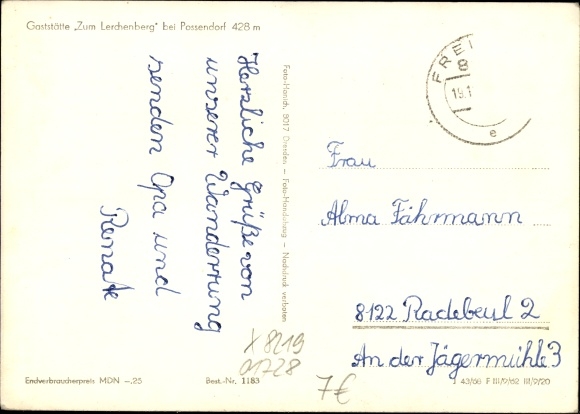 Gaststätte „Zum Lerchenberg" bei Possendorf 428 m
Herzliche Grüße von
unserer Wanderung
senden Opa und
Renate
Foto-Hanich, 8017 Dresden – Foto-Handabzug – Nachdruck verboten
FREI
8
19.1
e
Frau
Alma Fährmann
8122 Radebeul 2
An der Jägermühle 3
X 8219
01728
7€
Endverbraucherpreis MDN –,25
Best.-Nr. 1183
1 43/66 F III/9/62 III/9/20